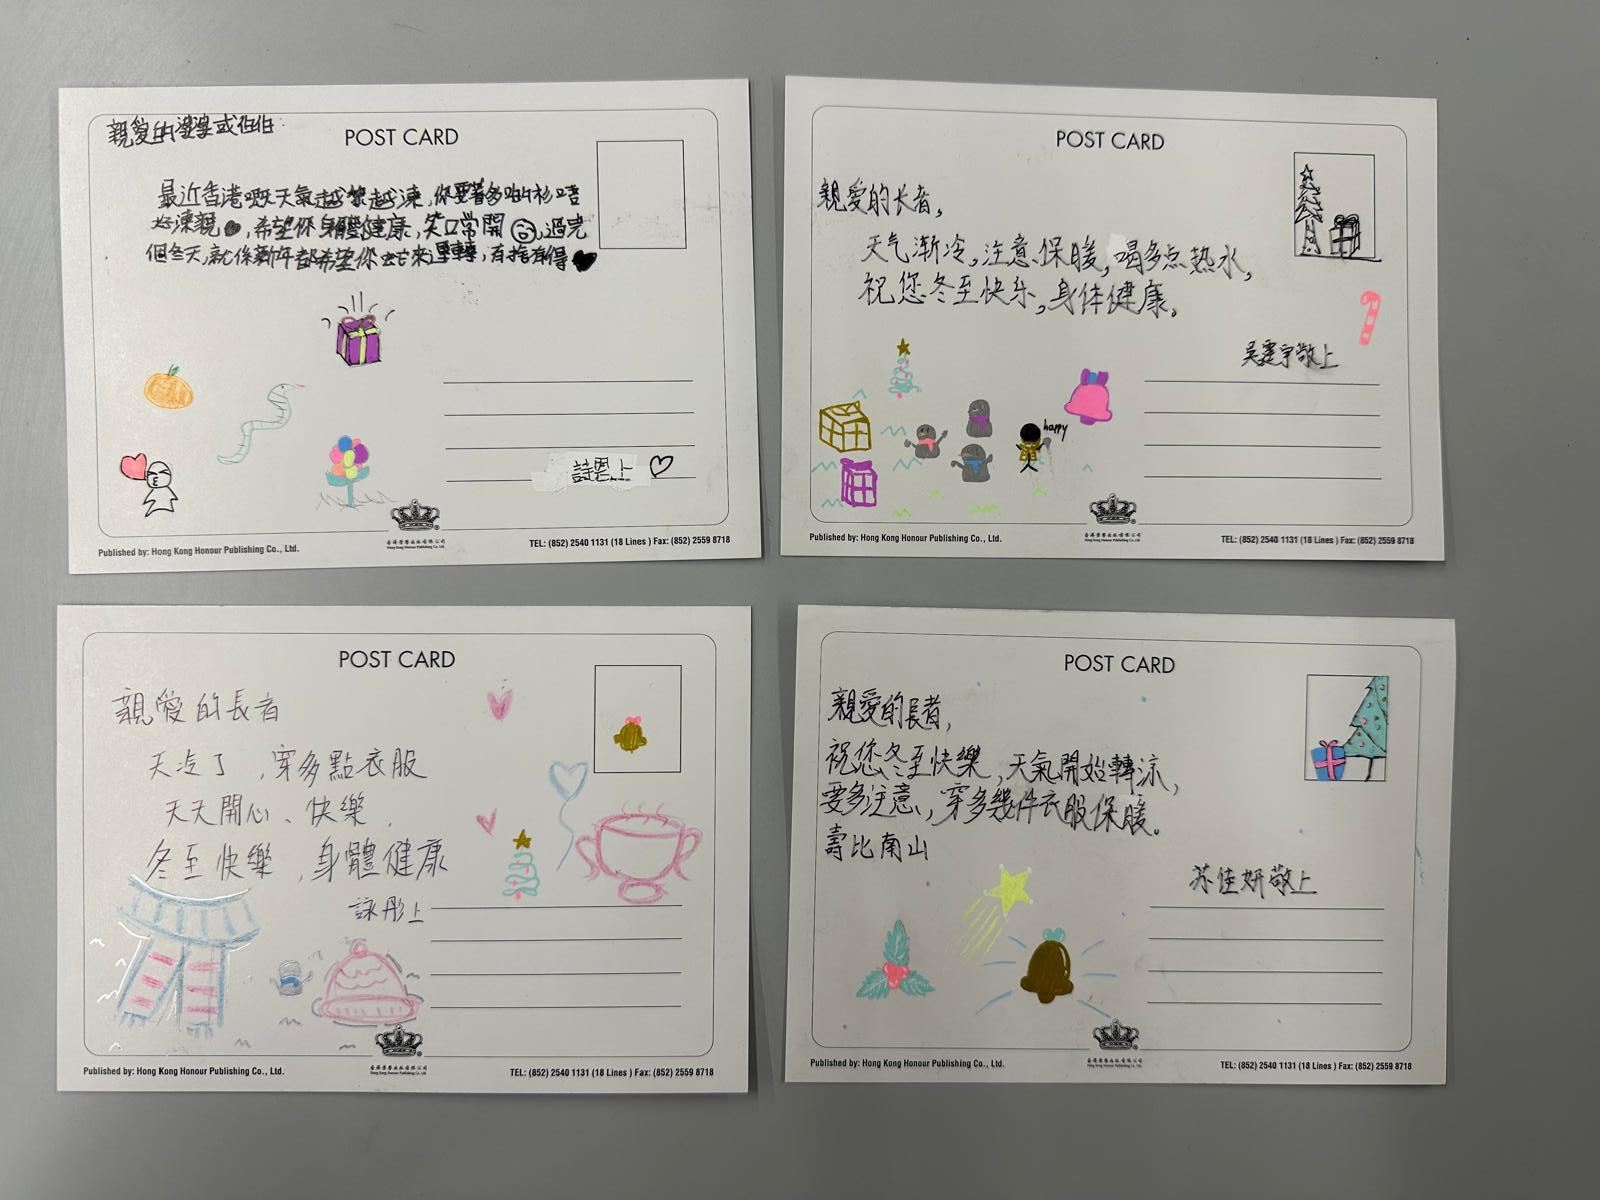 親愛的婆婆或伯伯
POST CARD
最近香港嘅天氣越嚟越凍,你要著多啲衫唔
好凍親,希望你身體健康,笑口常開,過完
個冬天,就係新年都希望你出去來運轉,有捨有得
詩雲上
Published by: Hong Kong Honour Publishing Co., Ltd.
香港榮譽出版有限公司
Hong Kong Honour Publishing Co. Ltd.
TEL: (852) 2540 1131 (18 Lines ) Fax: (852) 2559 8718
POST CARD
親愛的长者,
天气渐冷,注意保暖,喝多点热水,
祝您冬至快乐,身体健康。
敬上
happy
Published by: Hong Kong Honour Publishing Co., Ltd.
香港榮譽出版有限公司
Hong Kong Honour Publishing Co. Ltd.
TEL: (852) 2540 1131 (18 Lines ) Fax: (852) 2559 8718
POST CARD
親愛的長者
天冷了,穿多點衣服
天天開心、快樂,
冬至快樂,身體健康
詠彤上
Published by: Hong Kong Honour Publishing Co., Ltd.
香港榮譽出版有限公司
Hong Kong Honour Publishing Co. Ltd.
TEL: (852) 2540 1131 (18 Lines ) Fax: (852) 2559 8718
POST CARD
親愛的長者,
祝您冬至快樂,天氣開始轉涼,
要多注意,穿多幾件衣服保暖。
壽比南山
苏佳妍敬上
Published by: Hong Kong Honour Publishing Co., Ltd.
香港榮譽出版有限公司
Hong Kong Honour Publishing Co. Ltd.
TEL: (852) 2540 1131 (18 Lines ) Fax: (852) 2559 8718